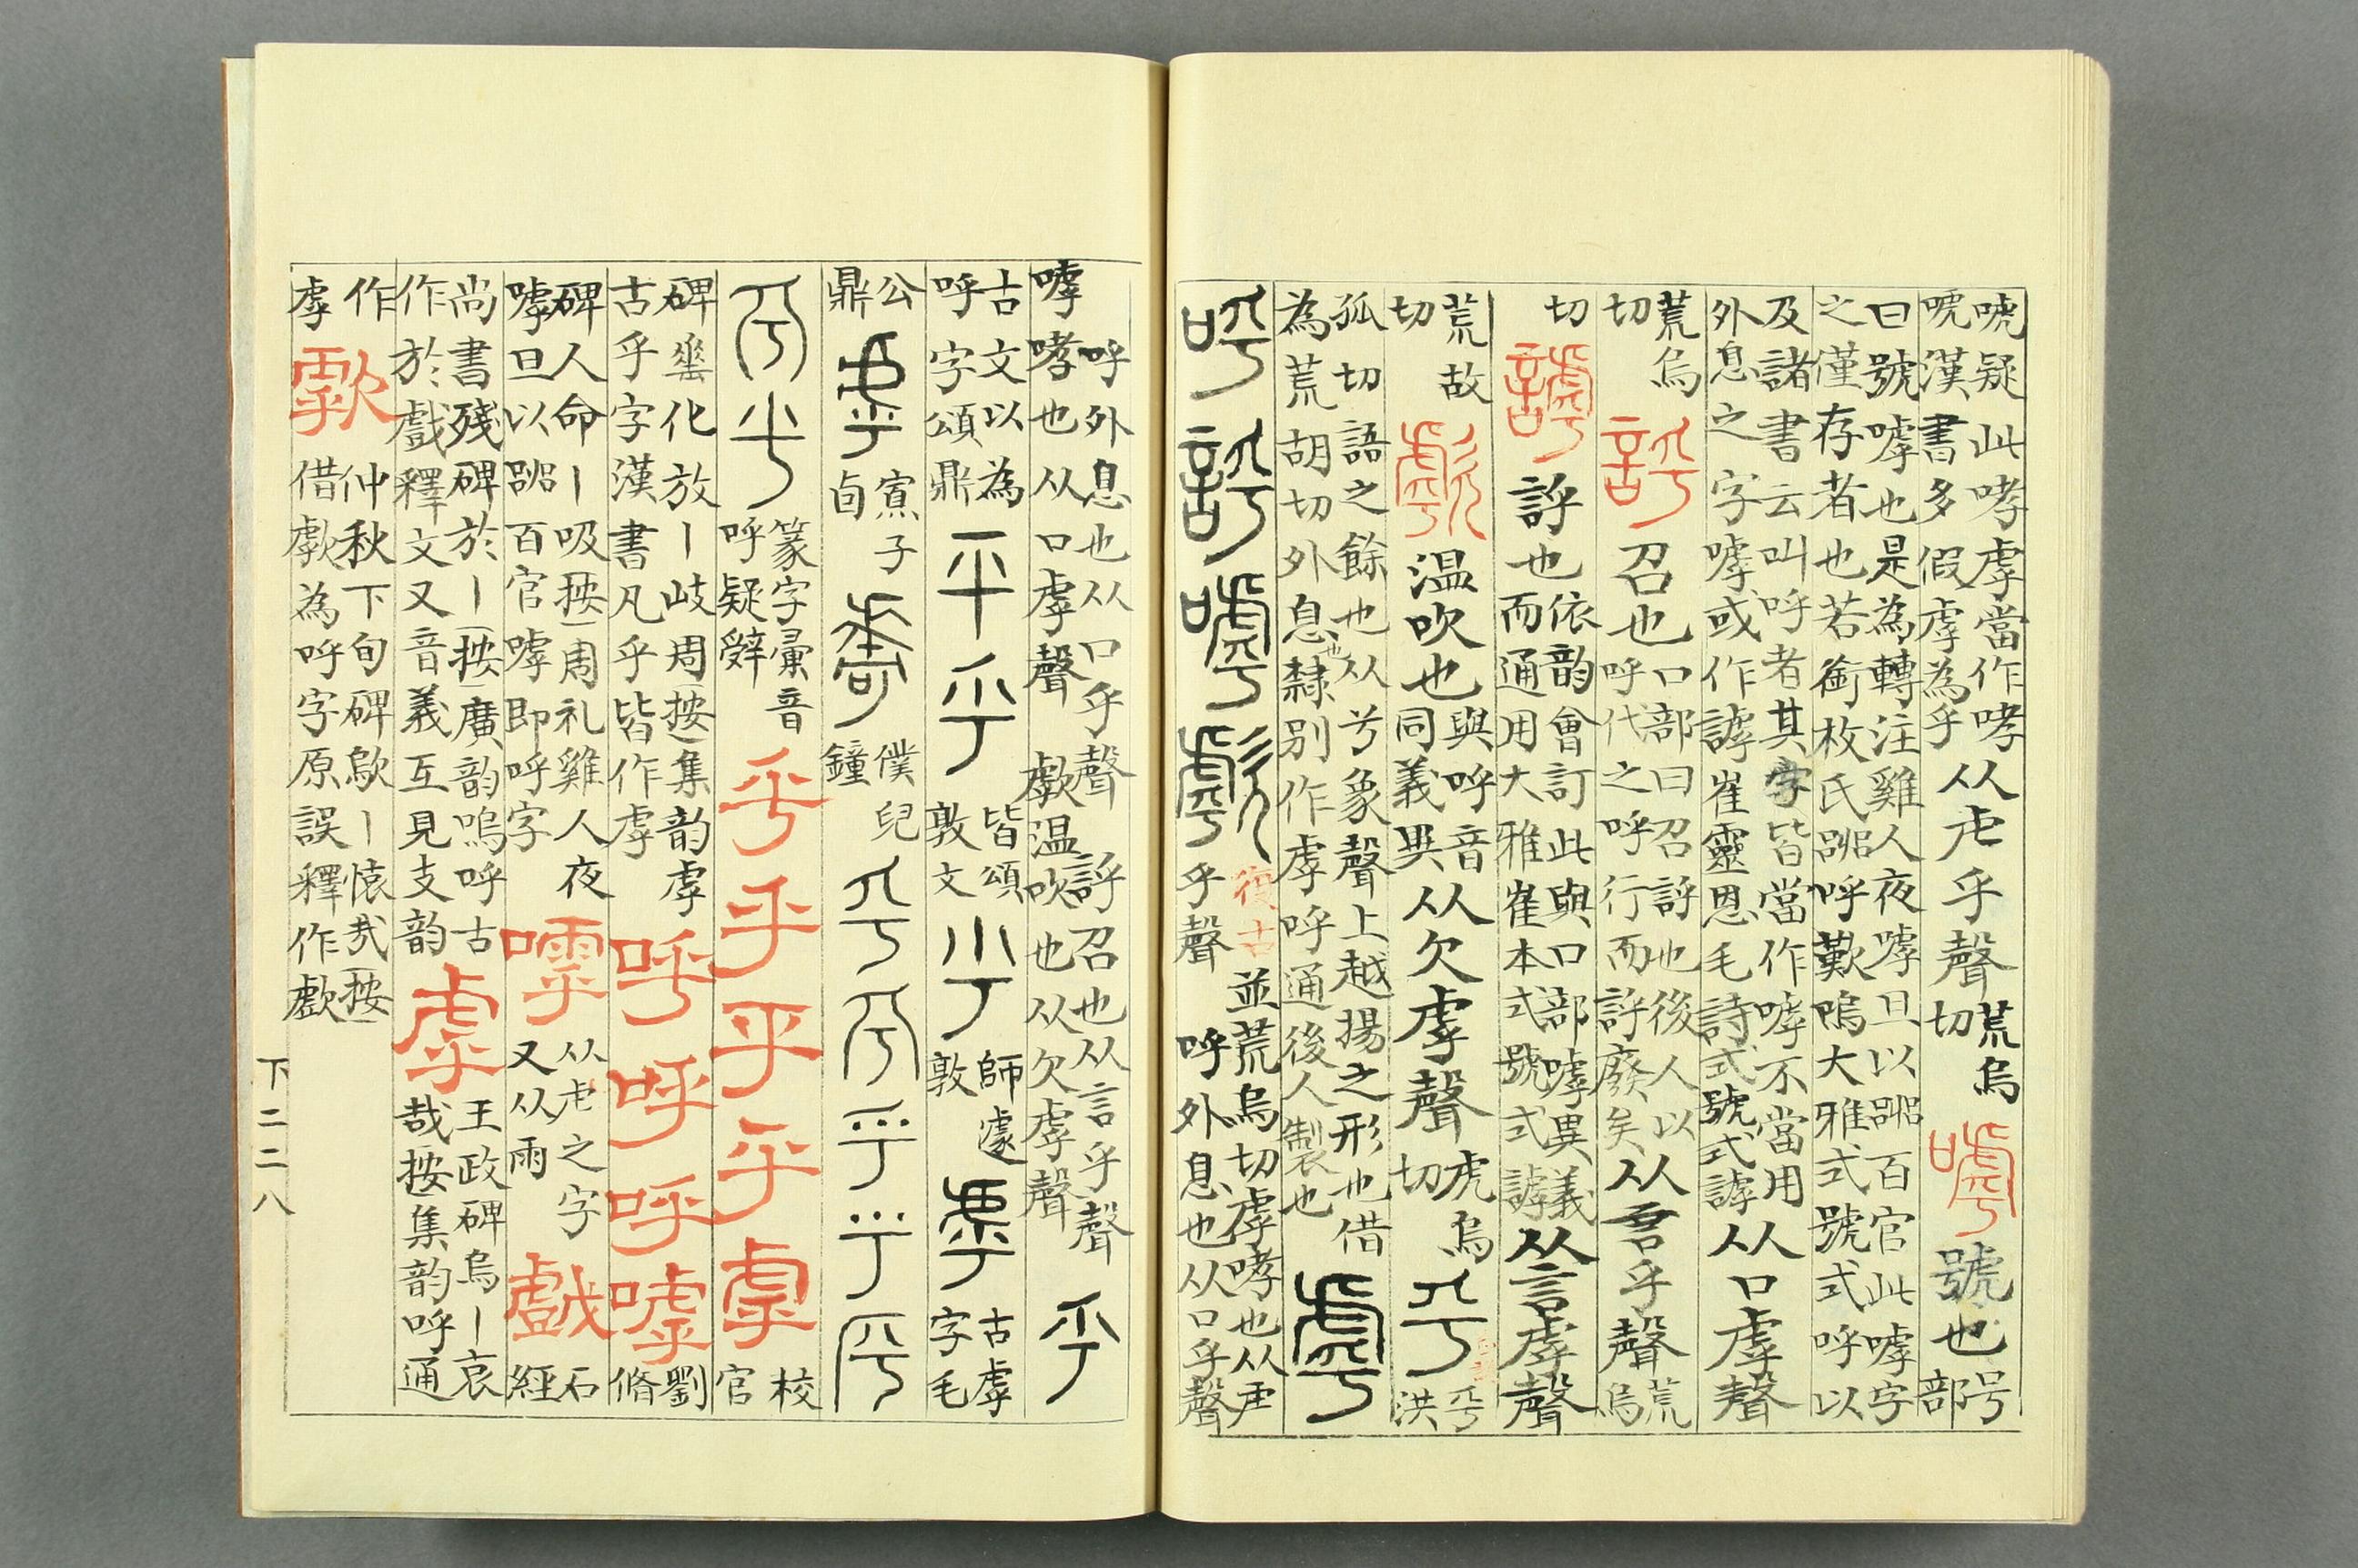 唬疑此哮虖當作哮
唬漢書多假虖為乎
从虍乎聲
荒烏
切
嘑
號也
号
部
曰號嘑也是為轉注雞人夜嘑旦以嘂百官此嘑字
之僅存者也若銜枚氏嘂呼歎鳴大雅式號式呼以
及諸書云叫呼者其字皆當作嘑不當用
外息之字嘑或作謼崔靈恩毛詩式號式謼
从口虖聲
荒烏
切
評
召也
口部曰召評也後人以
呼代之呼行而評廢矣
从言乎聲
荒
烏
切
謼
評也
依韵會訂此與口部嘑異義
而通用大雅崔本式號式謼
从言虖聲
荒故
切
歑
温吹也
與呼音
同義異
从欠虖聲
虎烏
切
乎
乎
洪
孤切語之餘也从兮象聲上越揚之形也借
為荒胡切外息也隸別作虖呼通後人製也
虖
呼評嘑歑
復古
乎聲
並荒烏切虖哮也从虍
呼外息也从口乎聲
嘑
呼外息也从口乎聲
哮也从口虖聲
評召也从言乎聲
歑温吹也从欠虖聲
乎
古文以為
呼字頌鼎
平乎
皆頌
敦文
乎
師遽
敦
虖
古虖
字毛
公
鼎
虖
寡子
卣
虖
僕兒
鐘
乎乎乎乎乎
乎乎
篆字彙音
呼疑辤
乎乎乎乎虖
校
官
碑壐化放丨岐周按集韵虖
古乎字漢書凡乎皆作虖
呼呼呼嘑
劉
脩
碑人命丨吸按周礼雞人夜
嘑旦以嘂百官嘑即呼字
嘑
从虍之字
又从雨
戲
石
經
尚書殘碑於丨按廣韵嗚呼古
作於戲釋文又音義互見支韵
虖
王政碑烏丨哀
哉按集韵呼通
作
虖
歑
仲秋下旬碑歍丨懷㢤按
借歑為呼字原誤釋作歑
下二二八